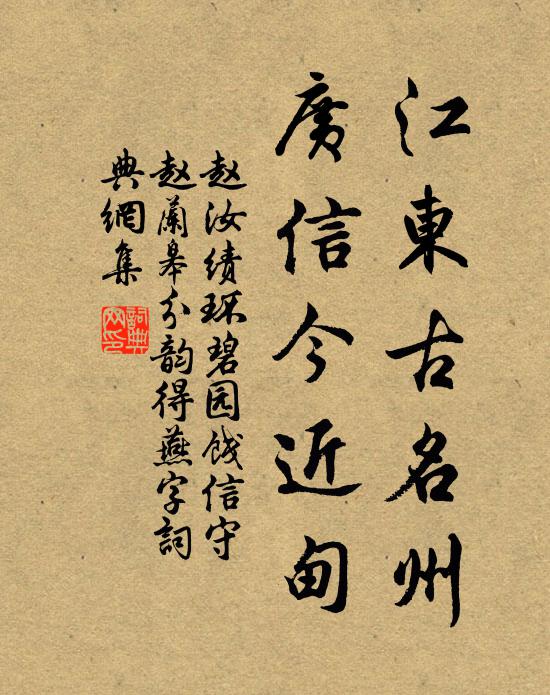 江東古名州
廣信今近甸
赵汝绩环碧园饯信守
赵蘭皋分韵得燕字詞
典網集
詞典网印